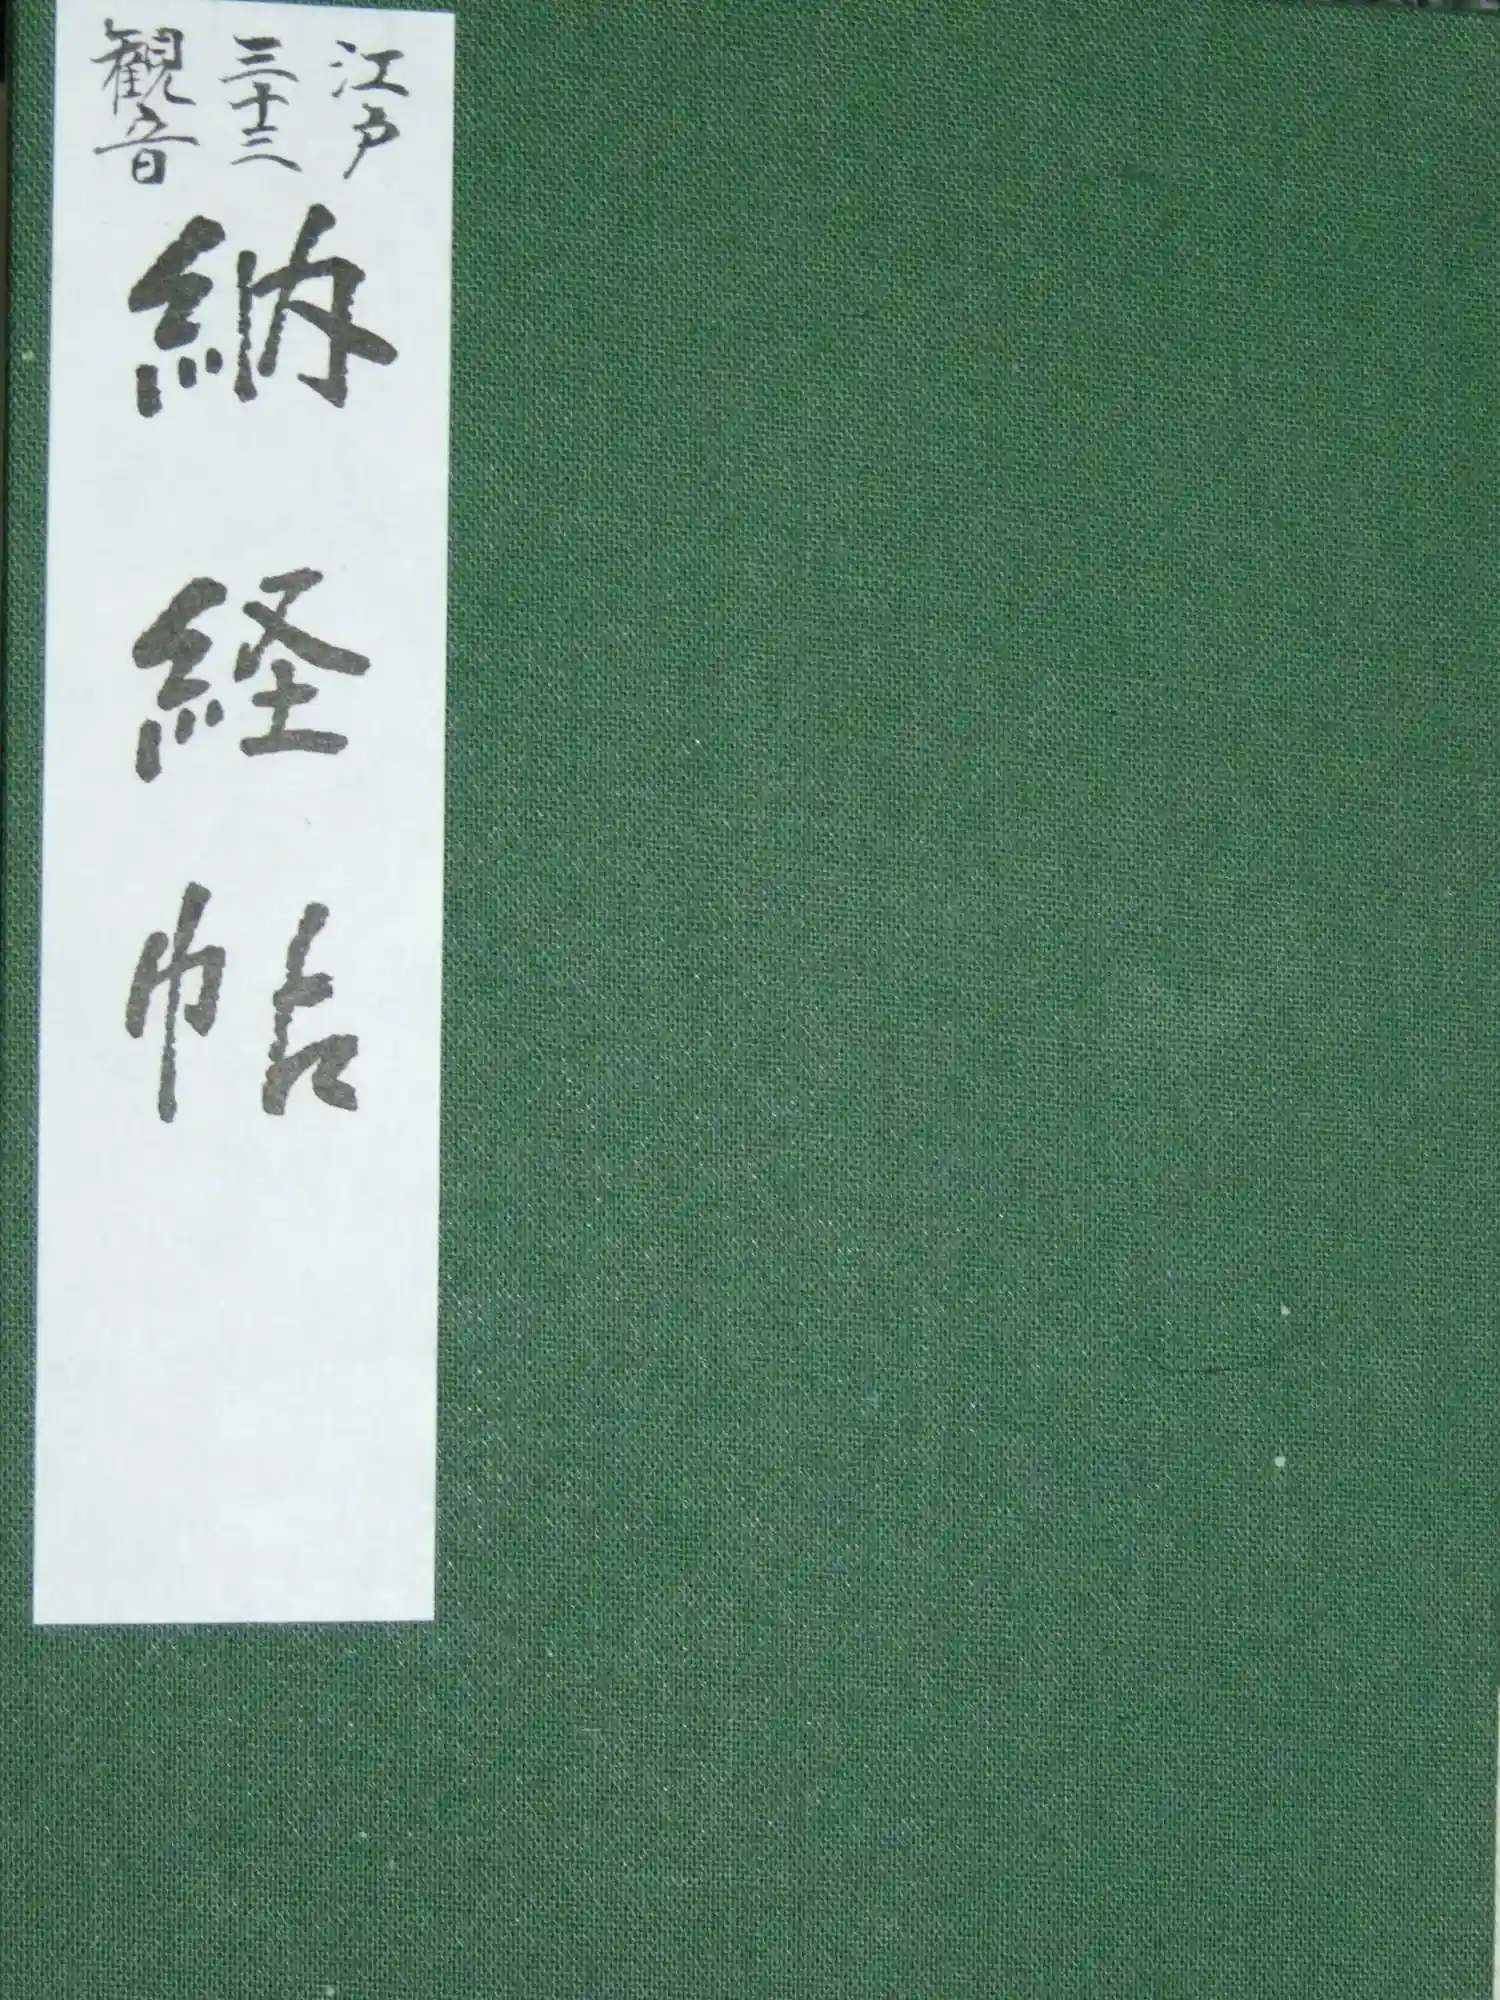 江戸
三十三
観音
納経帖